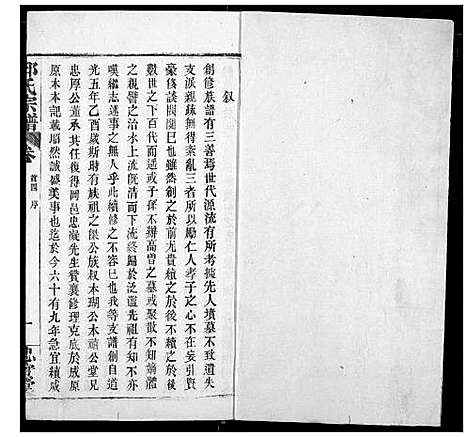 叙
創修族譜有三善焉世代源流有所考據先人墳墓不致遺失
支派親疎無得紊亂三者所以勵仁人孝子之心不在妄引賢
豪侈談閥閱巳也雖然創之於前不有續之於後不續之於後
數世之下百代而上不辯高曾之墓或聚散不知嫡體
之親譬之治水上流旣清而下流終歸於濁先祖有知不
嘆繼志述事之無人乎此續修之不可無也我等支譜創自道
光五年乙酉歲斯時有族祖之傑公族叔本瑚公木禱公堂兄
忠厚公董承其任復得同邑忠凝先生贊襄修理克底於成原
原木本記載堦然誠盛美事也迄於今六十有九年急宜續咸
氏宗譜 卷 首四 序
一
堂